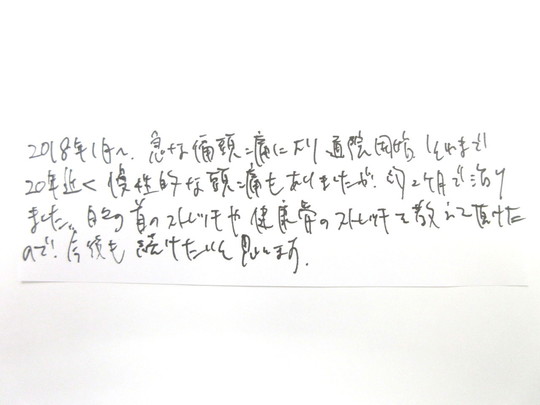 2018年1月~、急な偏頭痛になり通院開始、それまで
20年近く慢性的な頭痛もありましたが、約2ヶ月で治り
ました。自分の首のストレッチや健康骨のストレッチを教えて頂けた
ので、今後も続けたいと思います。